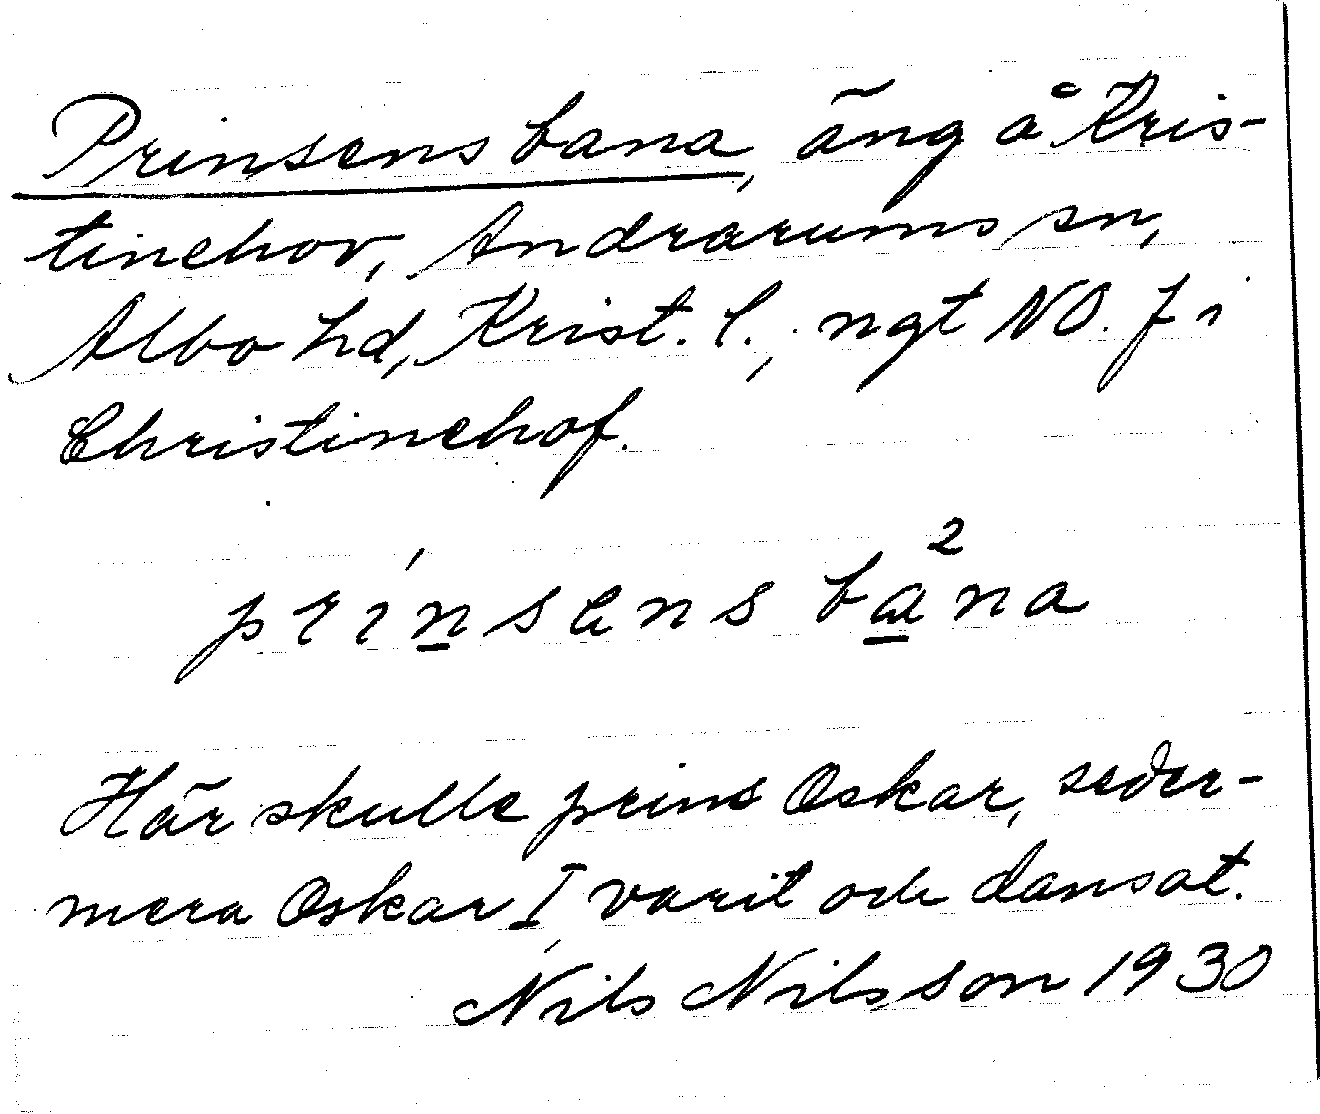 Prinsens bana, äng å Kris-
tinehov, Andrarums sn,
Albo hd, Krist. l., ngt NO. f i
Christinehof.
prinsens bana
Här skulle prins Oskar, seder-
mera Oskar I varit och dansat.
Nils Nilsson 1930